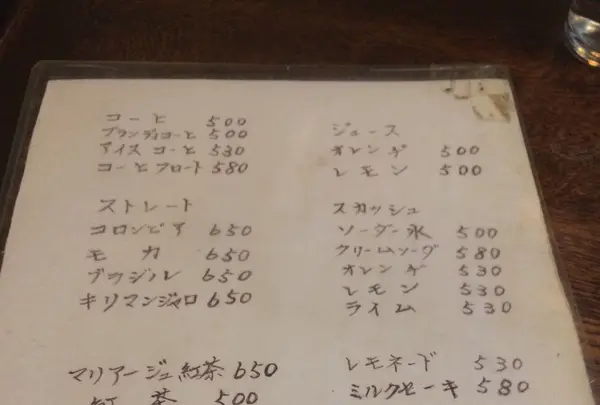 コーヒ 500
ブランディコーヒ 500
アイスコーヒ 530
コーヒフロート 580
ストレート
コロンビア 650
モカ 650
ブラジル 650
キリマンジャロ 650
マリアージュ紅茶 650
紅茶 500
ジュース
オレンヂ 500
レモン 500
スカッシュ
ソーダー氷 500
クリームソーダ 580
オレンヂ 530
レモン 530
ライム 530
レモネード 530
ミルクセーキ 580